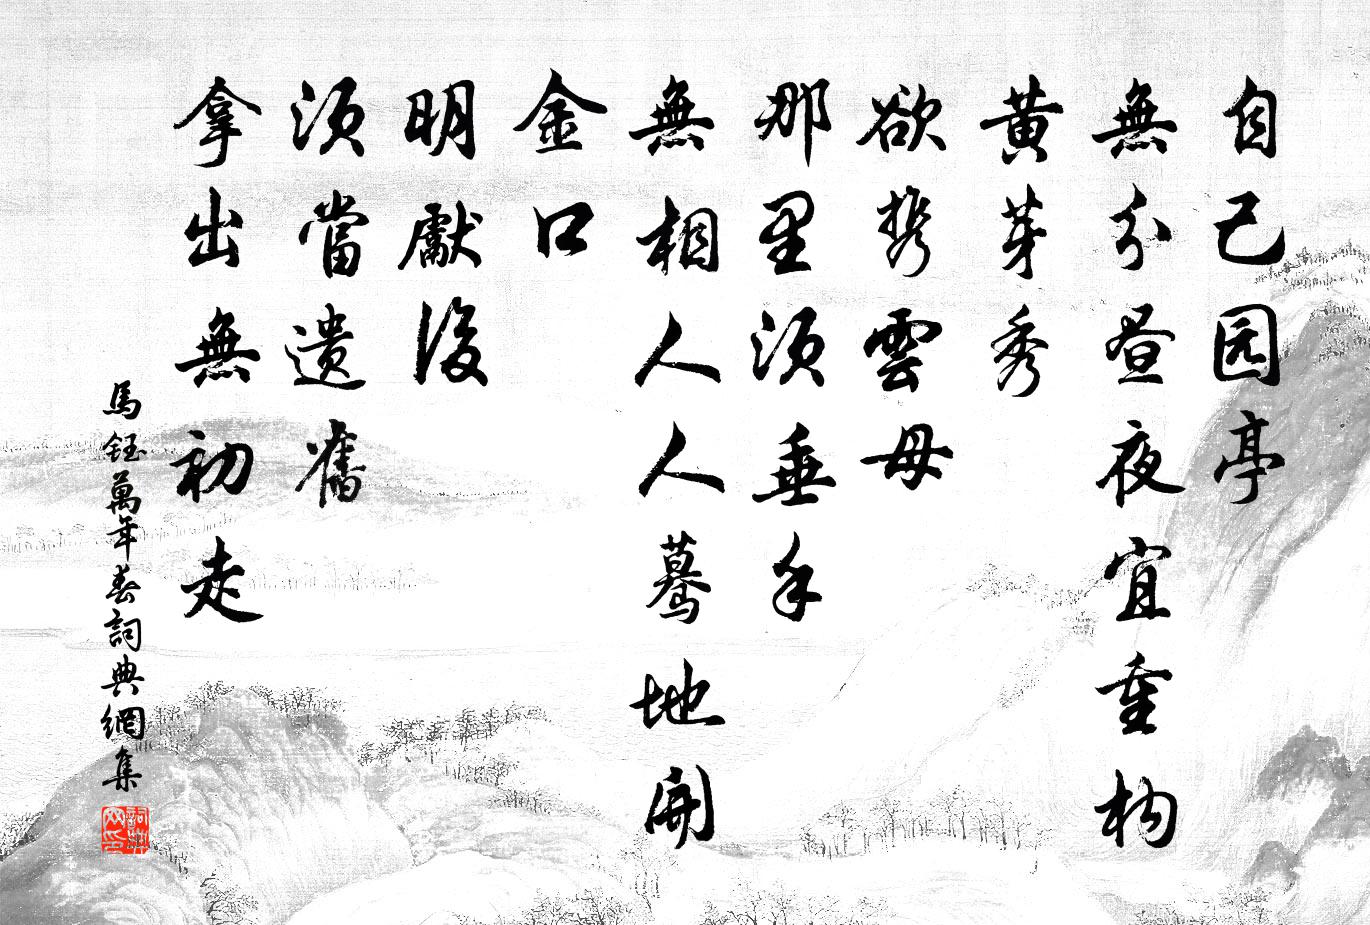 自己园亭
無分昼夜宜重构
黄芽秀
欲携雲母
那里须垂手
無相人人驀地開
金口
明獻後
须當遺舊
拿出無初走
馬鈺萬年春詞典網集